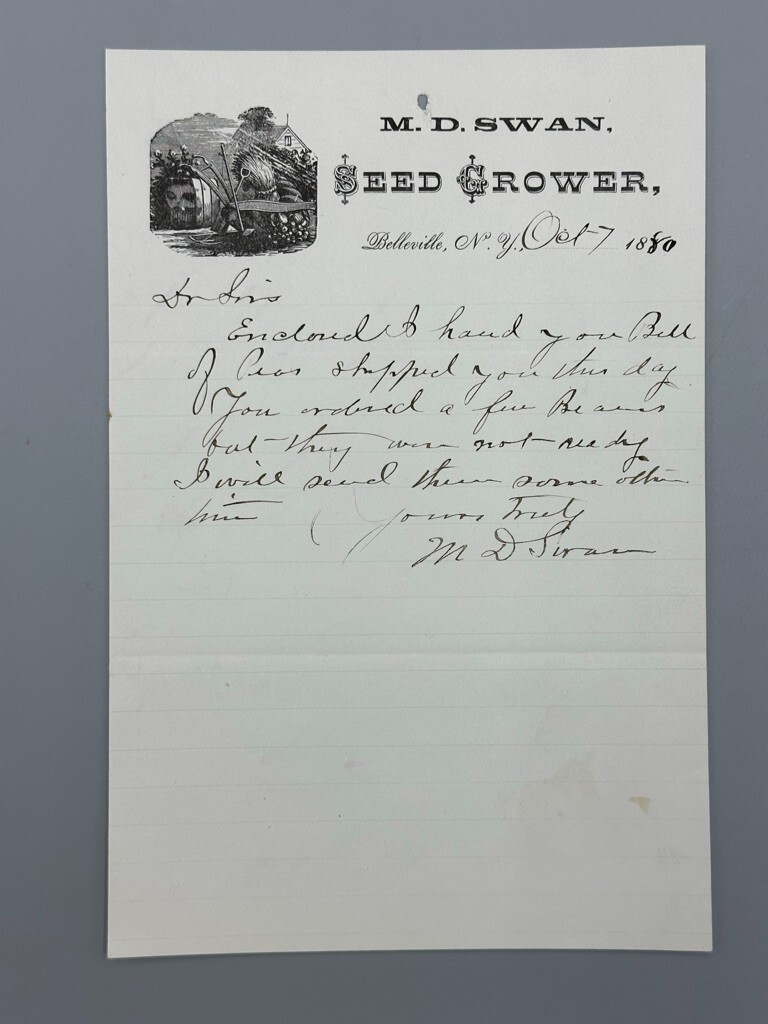 M. D. SWAN,
SEED GROWER,
Belleville, N. Y., Oct 7 1880
Dr Sirs
Enclosed I hand you Bill
of Peas shipped you this day
You ordered a few Beans
but they were not ready
I will send them some other
time Yours Truly
M D Swan